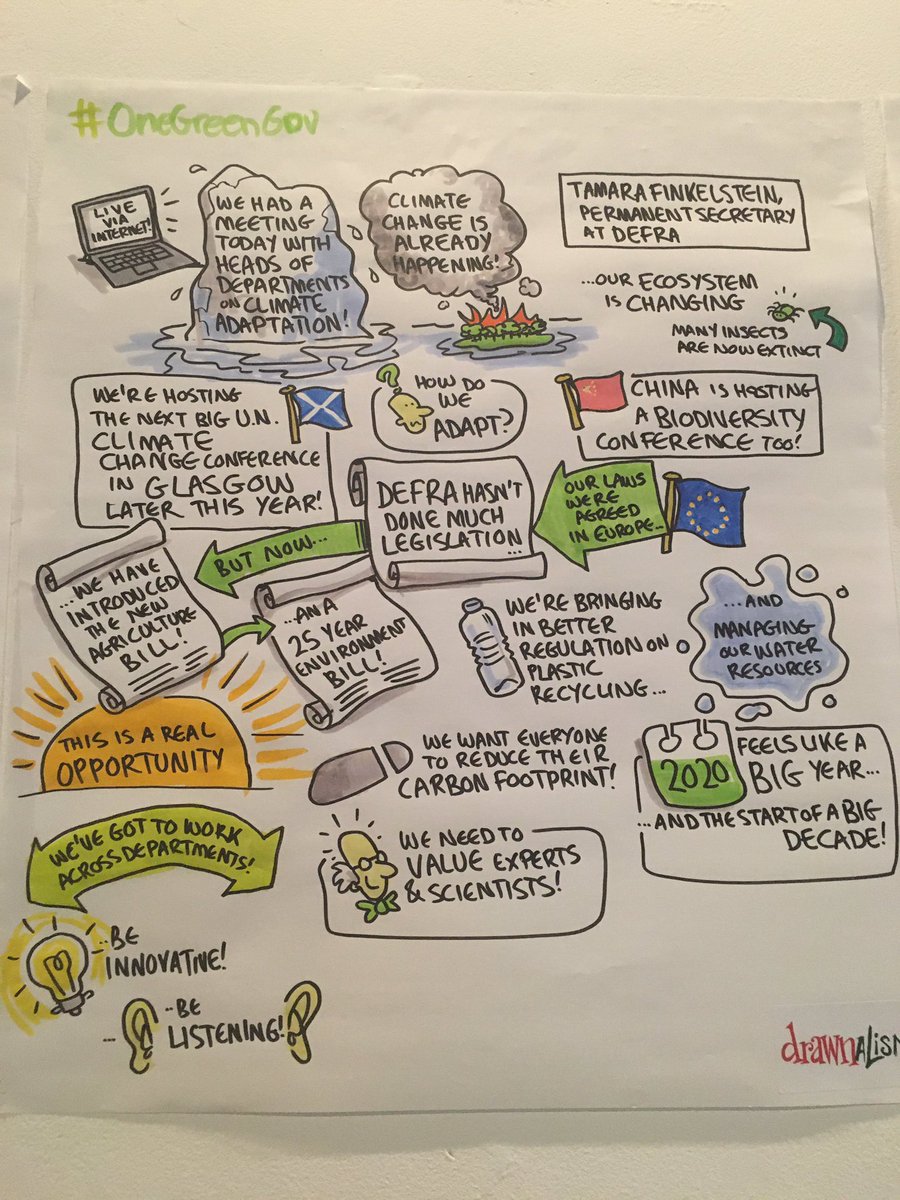 #OneGreenGov
LIVE
VIA
INTERNET!
WE HAD A
MEETING
TODAY WITH
HEADS OF
DEPARTMENTS
ON CLIMATE
ADAPTATION!
CLIMATE
CHANGE IS
ALREADY
HAPPENING!
TAMARA FINKELSTEIN,
PERMANENT SECRETARY
AT DEFRA
...OUR ECOSYSTEM
IS CHANGING
MANY INSECTS
ARE NOW EXTINCT
WE'RE HOSTING
THE NEXT BIG U.N.
CLIMATE
CHANGE CONFERENCE
IN GLASGOW
LATER THIS YEAR!
?
HOW DO
WE
ADAPT?
CHINA IS HOSTING
A BIODIVERSITY
CONFERENCE TOO!
OUR LAWS
WERE
AGREED
IN EUROPE...
DEFRA HASN'T
DONE MUCH
LEGISLATION...
BUT NOW...
...WE HAVE
INTRODUCED
THE NEW
AGRICULTURE
BILL!
...AN A
25 YEAR
ENVIRONMENT
BILL!
WE'RE BRINGING
IN BETTER
REGULATION ON
PLASTIC
RECYCLING...
...AND
MANAGING
OUR WATER
RESOURCES
THIS IS A REAL
OPPORTUNITY
WE WANT EVERYONE
TO REDUCE THEIR
CARBON FOOTPRINT!
2020
FEELS LIKE A
BIG YEAR...
...AND THE START OF A BIG
DECADE!
WE'VE GOT TO WORK
ACROSS DEPARTMENTS!
WE NEED TO
VALUE EXPERTS
& SCIENTISTS!
..BE
INNOVATIVE!
...
..BE
LISTENING!
drawnalism